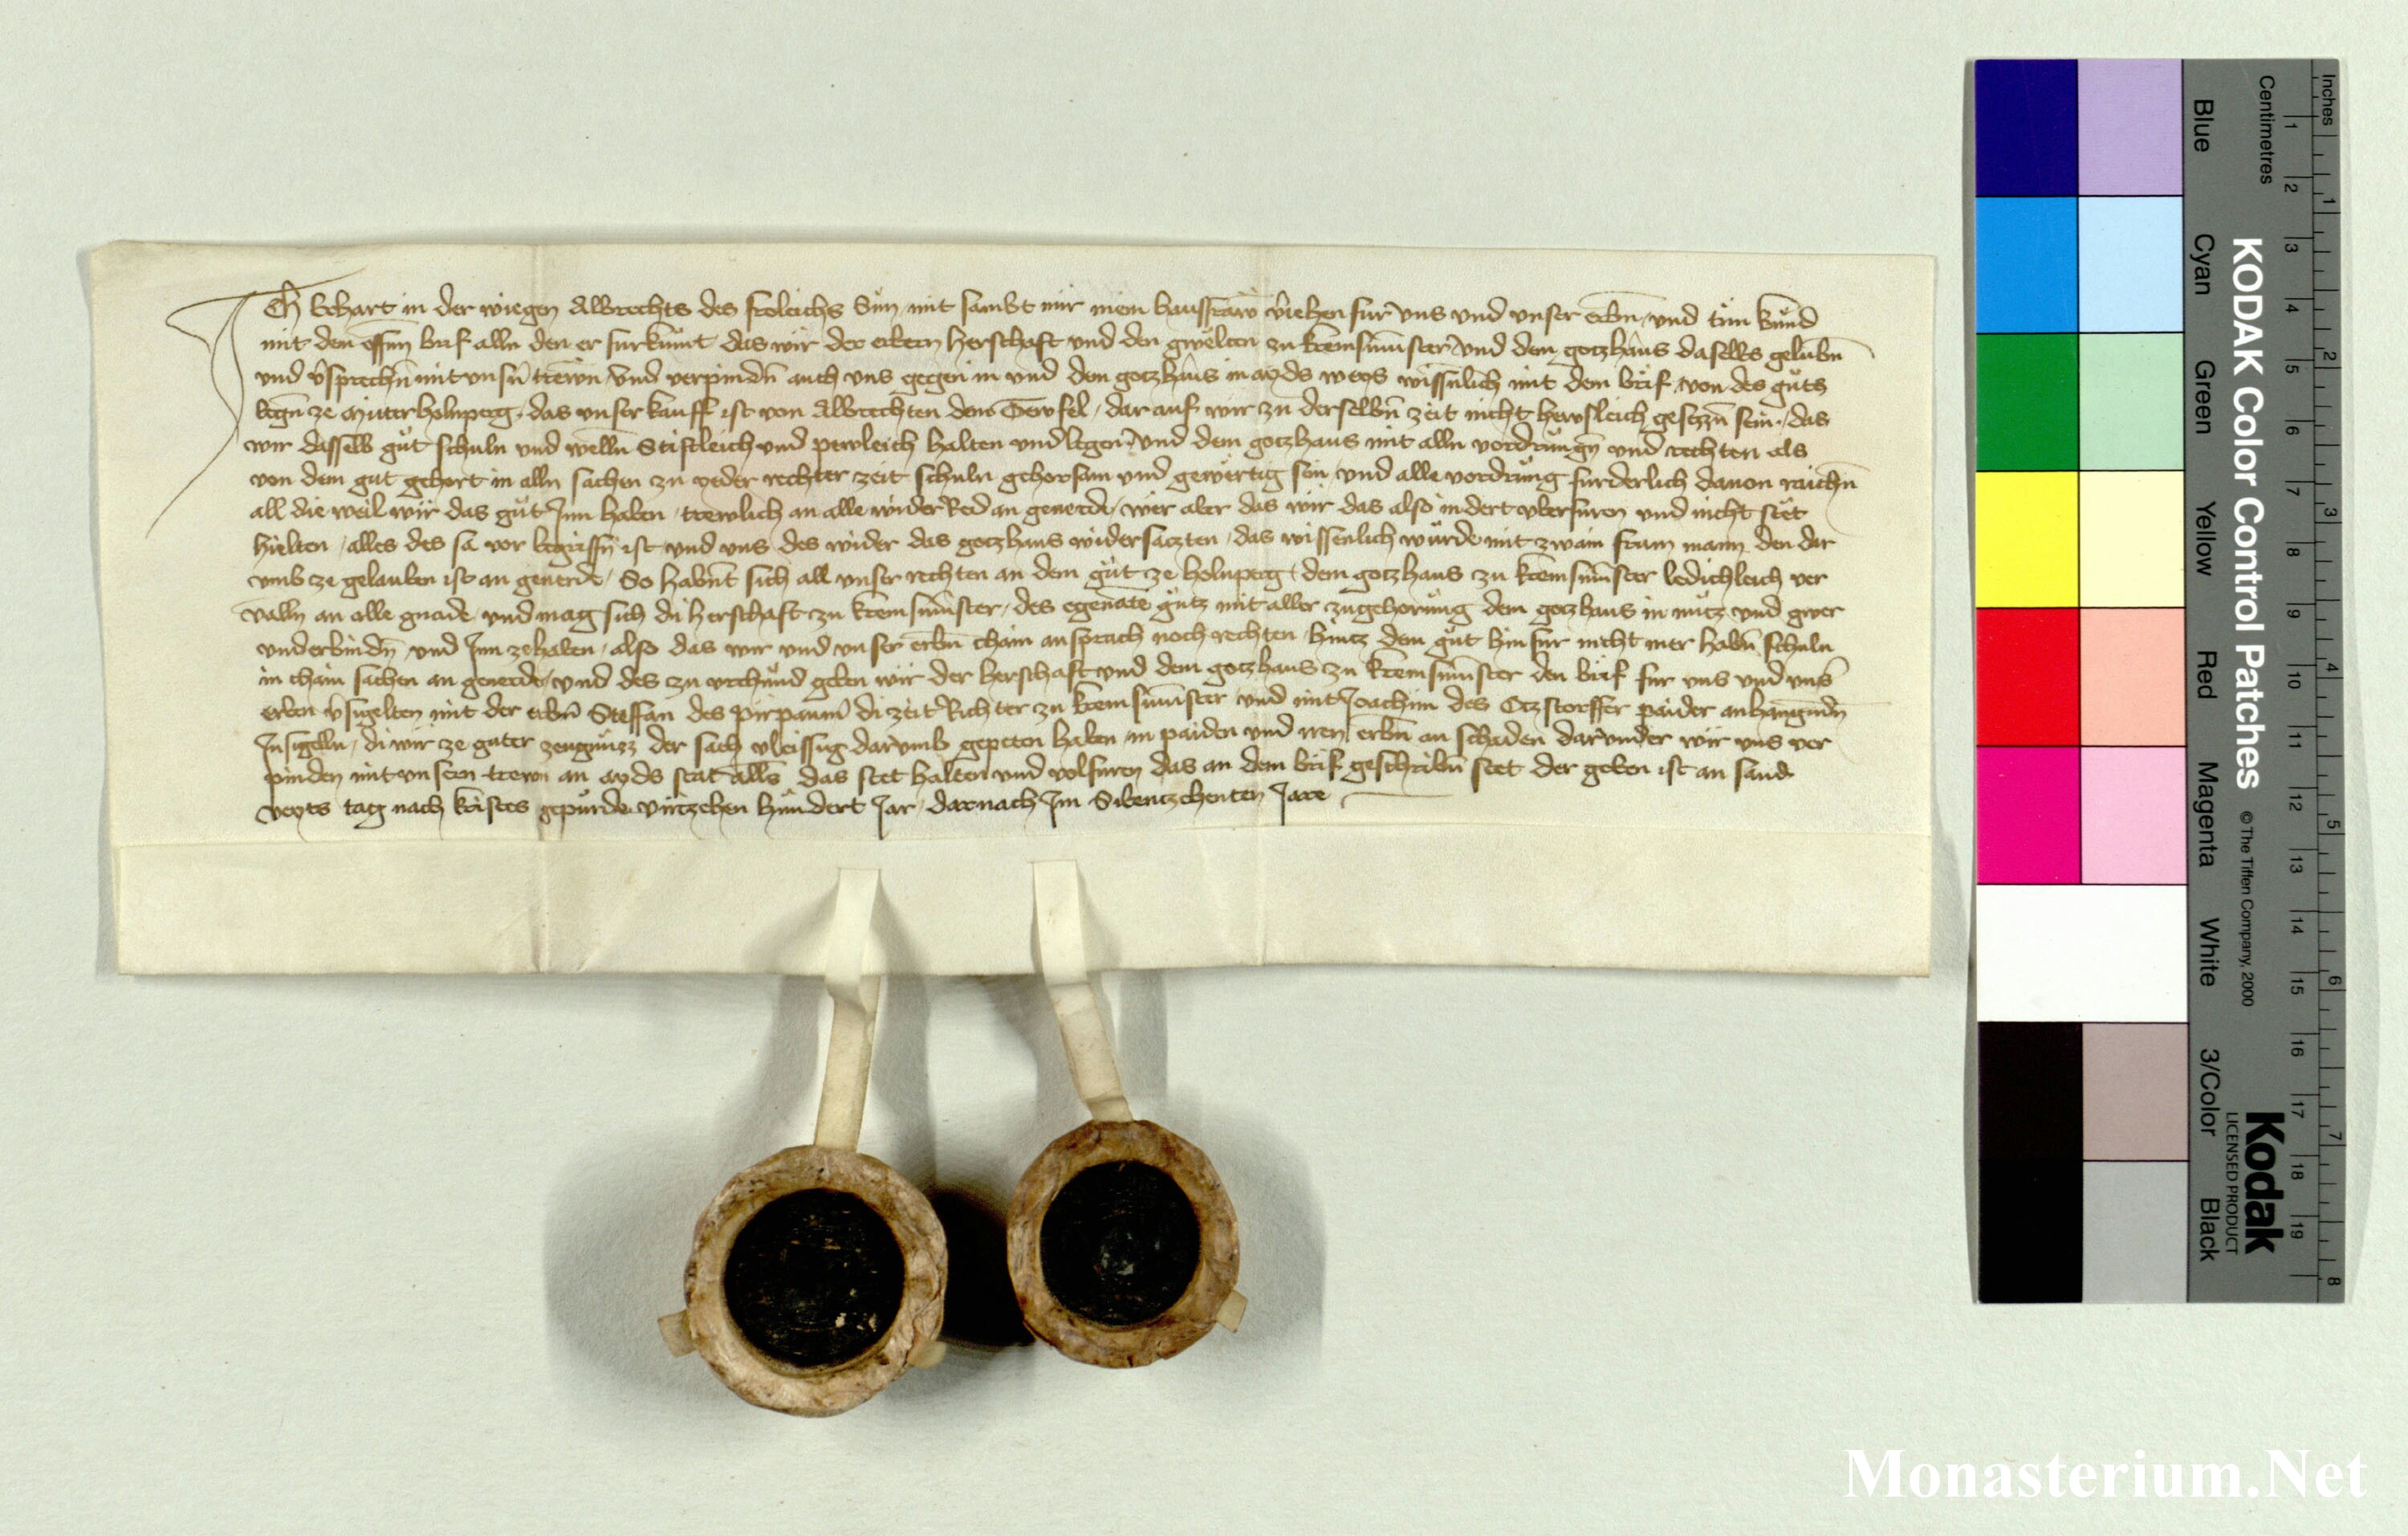 Ich Ekhart in der wiegen Albrechts des froleichs Sun mit sambt mir mein hausfraw v̄iehen fur uns und unser erbn̄ und tun kund
mit den offn̄n brif alln den er furkumt das wir der erbern herschaft und den gwelten zu kremsmunster und dem gotzhaus daselbs gelubn̄
und v̄sprechn̄ mit unsn̄ trewn und verpindn̄ auch uns gegen in und dem gotzhaus in ayds weys wissnlich mit dem brif von des guts
wegn ze holnperg das unser kauff ist von Albrechten dem Tewfel dar auf wir zu derselbn̄ zeit nicht hewsleich gesezzn̄ sein das
wir dasselb gut schuln und welln̄ Stiftleich und pewleich halten und legen und dem gotzhaus mit alln vordrungn̄ und rechten als
von dem gut gehort in alln sachen zu yeder rechter zeit schuln gehorsam und gewertig sein und alle vordrung furderlich davon raichn̄
all die weil wir das gut Inn haben trewlich an alle widerRed an geuerde wer aber das wir das also indert uberfuren und nicht stet
hielten alles des so vor begriffn̄ ist und uns des wider das gotzhaus widersaczten das wissenlich wurde mit zwain frum mann den dar
umb ze gelauben ist an geuerde So habnt sich all unser rechten an dem gut ze holnperg dem gotzhaus zu kremsmunster ledichleich ver
valln an alle gnade und mag sich di herschaft zu kremsmunster des egenate gutz mit aller zugehorung dem gotzhaus in nutz und gwer
underbindn̄ und Inn ze haben also das wir und unser erbn̄ chain ansprach noch rechten hintz dem gut hinfur nicht mer habn̄ schuln
in chain sachen an geuerde und des zu urchund geben wir der herschaft und dem gotzhaus zu kremsmunster den brif fur uns und uns̄
erben v̄sigelten mit der erbn̄ Steffan des pirpaum̄ di zeit Richter zu kremsmunster und mit Joachim des Otzstorffer paider anhangundn̄
Insigelln di wir ze guter zeugnuzz der sach vleissig darumb gepeten haben in paiden und iren erbn̄ an schaden darunder wir uns ver
pinden mit unsern trewn an ayds stat alls das stet halten und volfuren das an dem brif geschribn̄ stet der geben ist an sand
veyts tag nach kristes gepurde virtzehen hundert Jar darnach Im Sibentzehenten Jare
Inches
Centimetres
1 2 3 4 5 6 7 8 9 10 11 12 13 14 15 16 17 18 19
1 2 3 4 5 6 7 8
KODAK Color Control Patches
© The Tiffen Company, 2000
Kodak
LICENSED PRODUCT
Blue
Cyan
Green
Yellow
Red
Magenta
White
3/Color
Black
Monasterium.Net